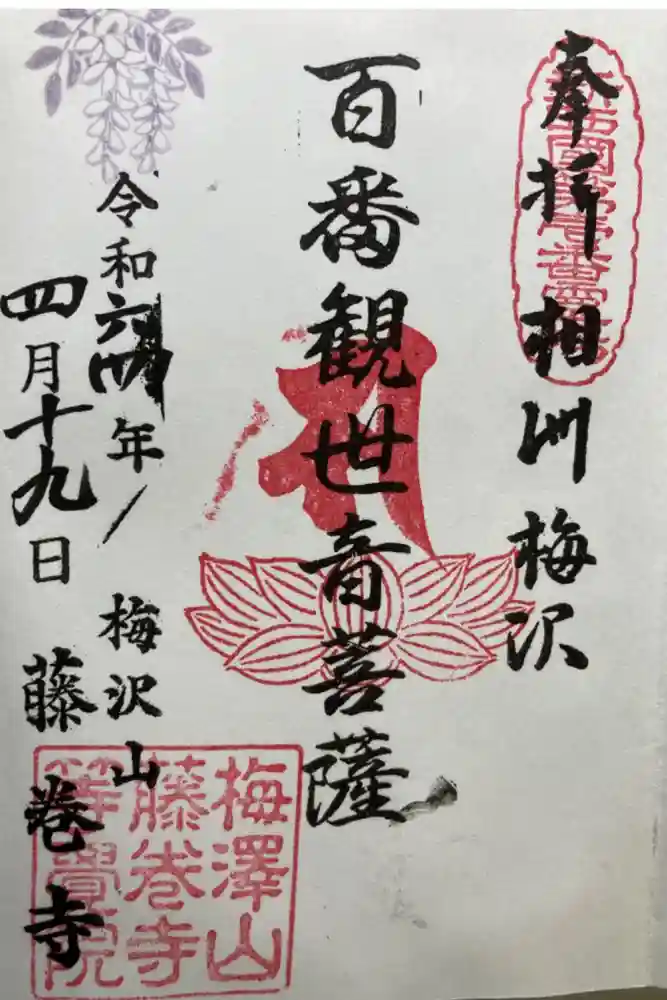 奉拝 相州 梅沢
百番観世音菩薩
令和六年
四月十九日
梅沢山
藤巻寺
梅澤山
藤巻寺
等覺院